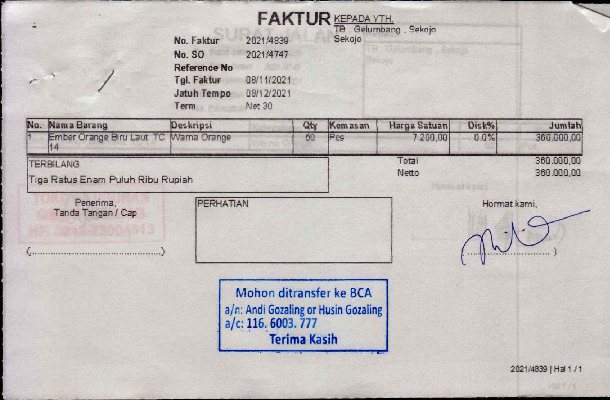 FAKTUR
KEPADA YTH.
TB . Gelumbang , Sekojo
Sekojo
No. Faktur 2021/4839
No. SO 2021/4747
Reference No
Tgl. Faktur 08/11/2021
Jatuh Tempo 08/12/2021
Term Net 30
No. Nama Barang Deskripsi Qty Kemasan Harga Satuan Disk% Jumlah
1 Ember Orange Biru Laut TC Warna Orange 50 Pcs 7.200,00 0.0% 360.000,00
14
TERBILANG
Tiga Ratus Enam Puluh Ribu Rupiah
Total 360.000,00
Netto 360.000,00
Penerima,
Tanda Tangan / Cap
(........................................)
PERHATIAN
Hormat kami,
Mohon ditransfer ke BCA
a/n: Andi Gozaling or Husin Gozaling
a/c: 116. 6003. 777
Terima Kasih
2021/4839 | Hal 1 / 1